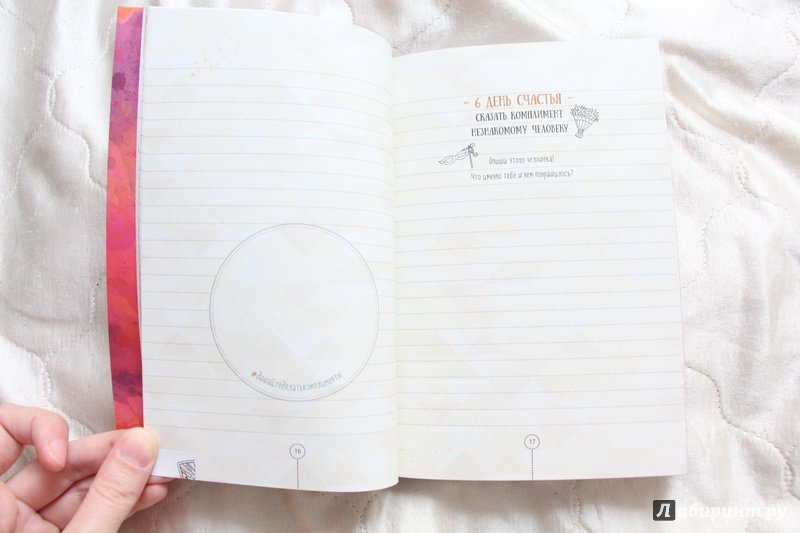 16
- 6 ДЕНЬ СЧАСТЬЯ -
СКАЗАТЬ КОМПЛИМЕНТ
НЕЗНАКОМОМУ ЧЕЛОВЕКУ
Опиши этого человека!
Что именно тебе в нем понравилось?
17
Лабиринт.ру